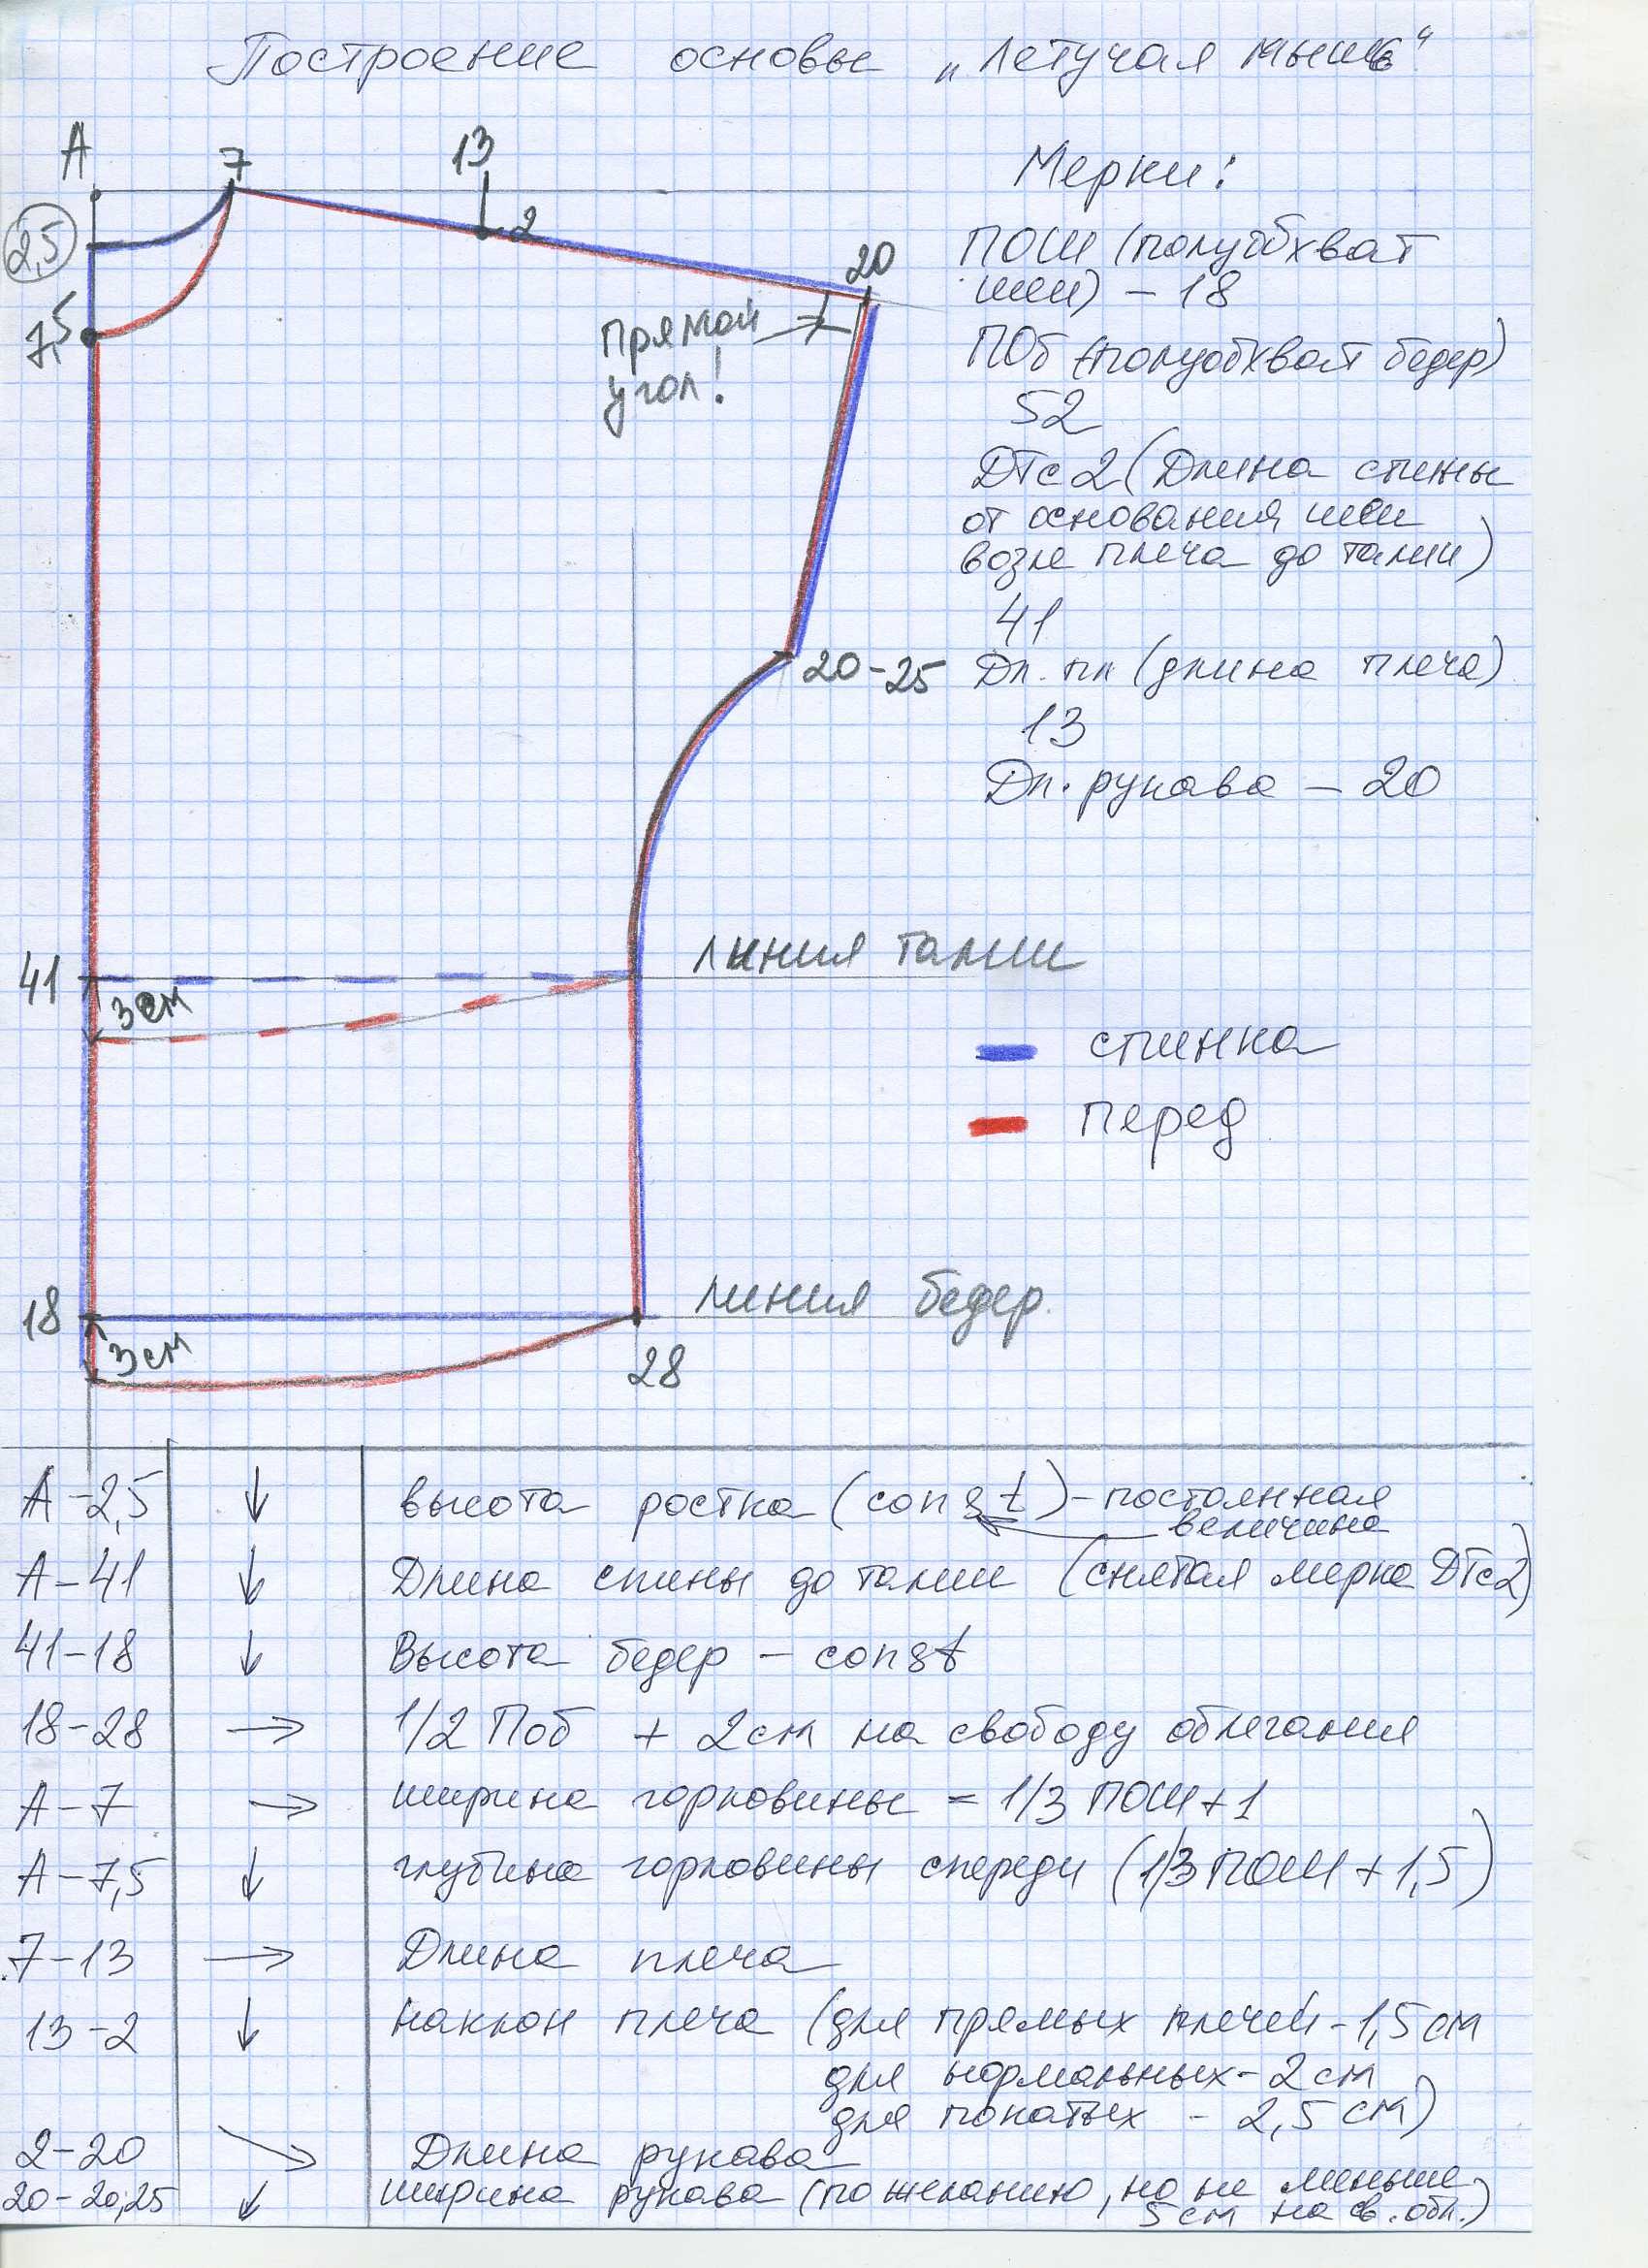 Построение основы „Летучая мышь“
А
7
13
2,5
2
20
7,5
прямой
угол!
20-25
41
3 см
линия талии
18
3 см
линия бедер
28
Мерки:
ПОШ (полуобхват
шеи) – 18
ПОб (полуобхват бедер)
52
ДТс2 (Длина спины
от основания шеи
возле плеча до талии)
41
Дл. пл (длина плеча)
13
Дл. рукава – 20
спинка
перед
А-2,5 ↓ высота ростка (const) - постоянная
величина
А-41 ↓ Длина спины до талии (снятая мерка ДТс2)
41-18 ↓ Высота бедер – const
18-28 → 1/2 Поб + 2 см на свободу облегания
А-7 → ширина горловины = 1/3 ПОШ + 1
А-7,5 ↓ глубина горловины спереди (1/3 ПОШ + 1,5)
7-13 → Длина плеча
13-2 ↓ наклон плеча (для прямых плечей - 1,5 см
для нормальных - 2 см
для покатых - 2,5 см)
2-20 ↘ Длина рукава
20-20,25 ↓ ширина рукава (по желанию, но не меньше
5 см на св. обл.)